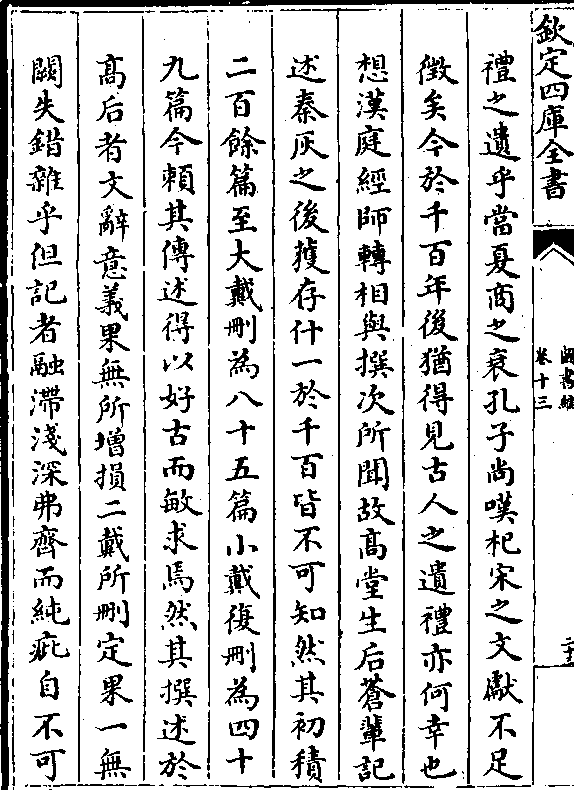 欽定四庫全書
圖書編
卷十三
二十五
禮之遺乎當夏商之衰孔子尚嘆杞宋之文獻不足
徵矣今於千百年後猶得見古人之遺禮亦何幸也
想漢庭經師轉相與撰次所聞故髙堂生后蒼輩記
述秦灰之後獲存什一於千百皆不可知然其初積
二百餘篇至大戴刪為八十五篇小戴復刪為四十
九篇今頼其傳述得以好古而敏求焉然其撰述於
髙后者文辭意義果無所增損二戴所刪定果一無
闕失錯雜乎但記者融滯淺深弗齊而純疵自不可